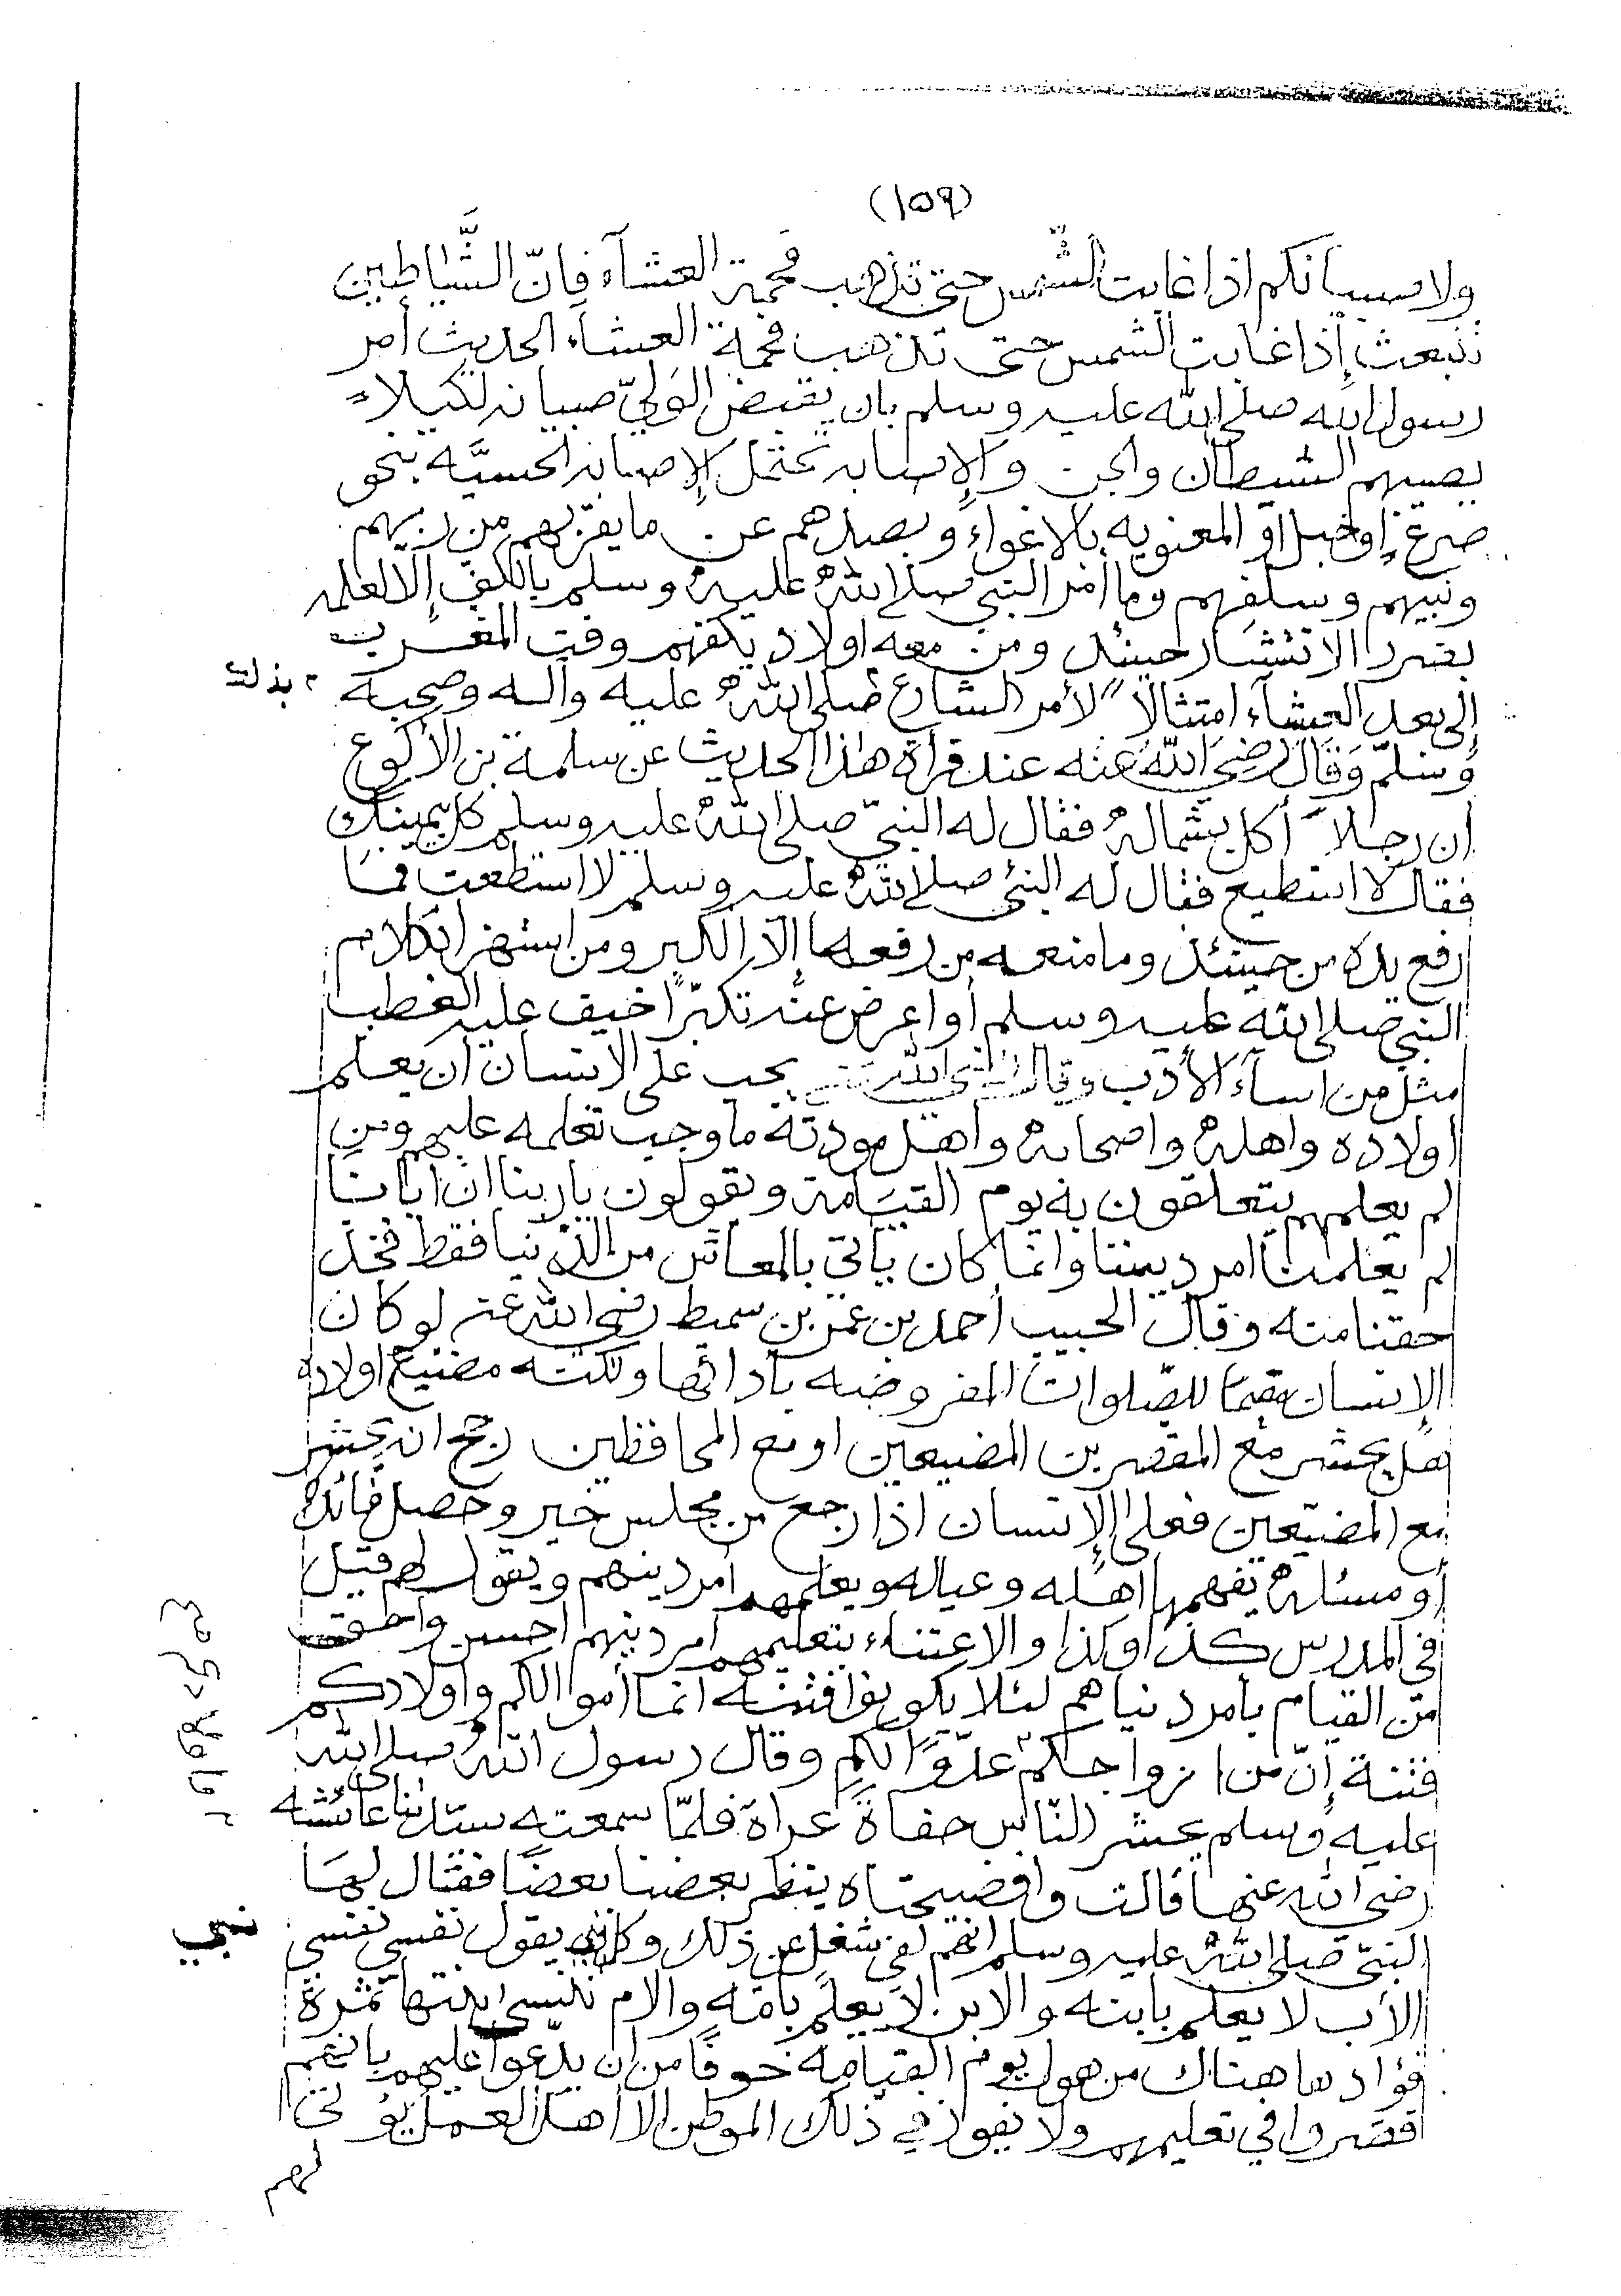 (١٥٩)
ولا صبيانكم اذا غابت الشمس حتى تذهب فحمة العشآء فإنّ الشَّياطين
تنبعث إذا غابت الشمس حتى تذهب فحمة العشاء الحديث أمر
رسول الله صلى الله عليه وسلم بان يقبض الوليّ صبيانه لكيلاء
يصيبهم الشيطان والجن والإصابه تحتمل الإصابه الحسيَّه بنحو
صرع او خبل او المعنويه بالاغواء وبصدهم عن ما يقربهم من ربهم
ونبيهم وسلفهم وما أمر النبي صلى الله عليه وسلم بالكف إلا لعلمه
بضرر الانتشار حينئذ ومن معه اولاد يكفهم وقت المغرب
إلى بعد العشآء امتثالاً لأمر الشارع صلى الله عليه وآله وصحبه بذلك
وسلّم وقال رضي الله عنه عند قرأة هذا الحديث عن سلمة بن الأكوع
ان رجلاً أكل بشماله فقال له النبيّ صلى الله عليه وسلم كل بيمينك
فقال لا استطيع فقال له النبي صلى الله عليه وسلم لا استطعت فما
رفع يده من حينئذ وما منعه من رفعها إلاّ الكبر ومن استهزا بكلام
النبي صلى الله عليه وسلم أو اعرض عنه تكبّرًا خيف عليه العطب
مثل من اسآء الأدب وقال رضي الله عنه يجب على الانسان أن يعلم
اولاده واهله واصحابه واهل مودته ما وجب تعلمه عليهم ومن
لم يعلمهم يتعلقون به يوم القيامة ويقولون ياربنا ان ابانا
لم يعلمنا امر ديننا وانما كان يأتي بالمعاش من الدنيا فقط فخذ
حقنا منه وقال الحبيب أحمد بن عمر بن سميط رضي الله عنه لو كان
الإنسان مقيما للصّلوات المفروضه بادائها ولكنه مضيع اولاده
هل يحشر مع المقصرين المضيعين او مع المحافظين رجح ان يحشر
مع المضيّعين فعلى الإنسان اذا رجع من مجلس خير وحصل فائدة
أو مسئلة يفهمها اهله وعياله ويعلمهم أمر دينهم ويقول لهم قيل
في المدرس كذا وكذا والاعتناء بتعليمهم امر دينهم احسن واحق
من القيام بأمر دنياهم لئلا يكونوا فتنه انما أموالكم واولادكم
فتنة إنّ من ازواجكم عدوًّا لكم وقال رسول الله صلى الله
عليه وسلم يحشر النّاس حفاةً عراة فلمّا سمعته ستنا عائشه
رضي الله عنها قالت وافضيحتاه ينظر بعضنا بعضًا فقال لها
النبيّ صلى الله عليه وسلم انهم لفي شغل عن ذلك وكل نبي يقول نفسي نفسي نبي
الأب لا يعلم بابنه والابن لا يعلم بامّه والام تنسى ابنتها ثمرة
فؤادها هناك من هول يوم القيامه خوفًا من ان يدّعوا عليهم بانهم
قصروا في تعليمهم ولا يفوز في ذلك الموطن إلا أهل العمل يؤتى
لهم